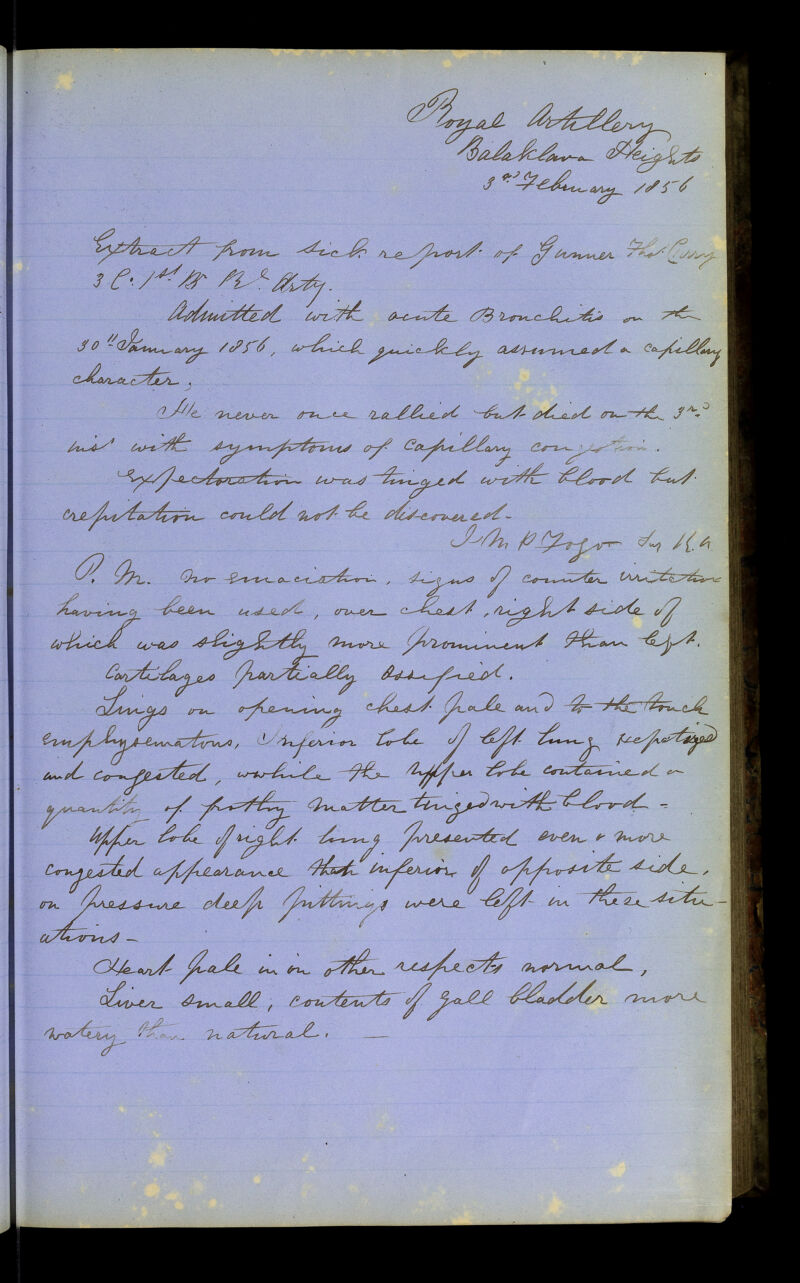 Royal Artillery
Balaklava Heights
3rd February 1856
Extract from sick report of Gunner Thos. Curry
3 C. 1st B Rl. Arty.
Admitted with acute Bronchitis on the
30th January 1856, which quickly assumed a capillary
character.
He never once rallied but died on the 3rd
inst with symptoms of capillary congestion.
Expectoration was tinged with blood but
crepitation could not be discovered -
Fogo Sur R.A
P. M. no emaciation, signs of counter irritation
having been used, over chest, right side of
which was slightly more prominent than left.
Cartilages partially ossified.
Lungs on opening chest pale and to the touch
emphysematous, Inferior lobe of left lung Hepatized
and congested, while the upper lobe contained a
quantity of frothy matter tinged with blood -
Upper lobe of right lung presented even a more
congested appearance than inferior of opposite side,
on pressure deep pittings were left in these situ-
ations -
Heart pale in other respects normal,
Liver small, contents of gall bladder more
watery than natural. -